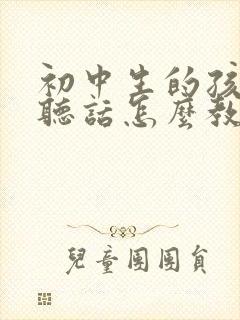 初中生的孩
聽話怎麼教
兒童團團員